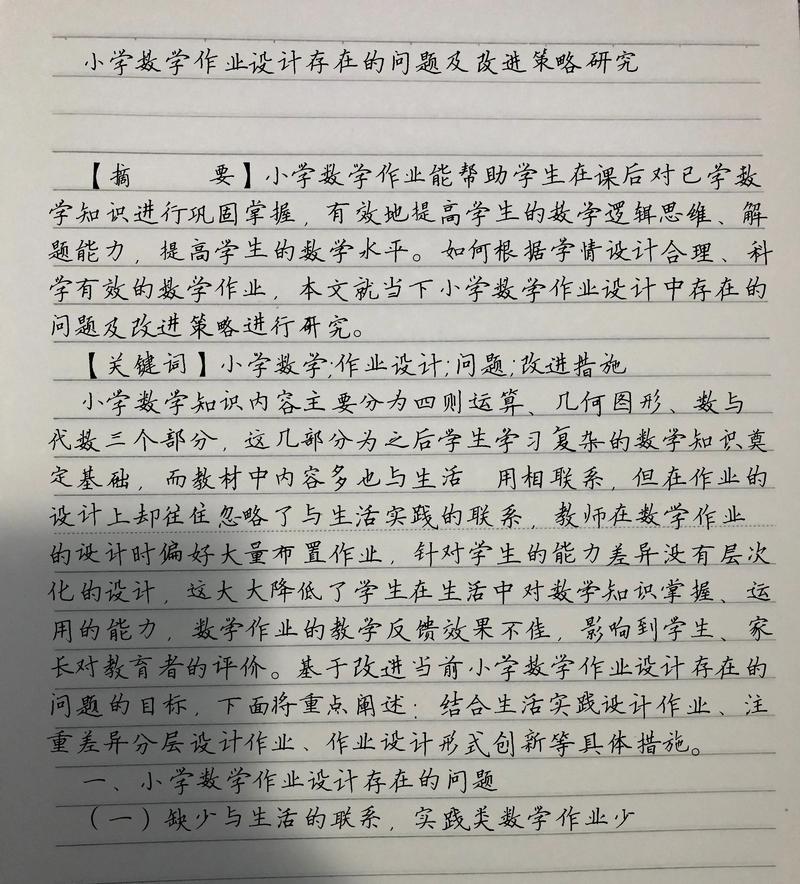 小学数学作业设计存在的问题及改进策略研究
【摘 要】小学数学作业能帮助学生在课后对已学数
学知识进行巩固掌握，有效地提高学生的数学逻辑思维、解
题能力，提高学生的数学水平。如何根据学情设计合理、科
学有效的数学作业，本文就当下小学数学作业设计中存在的
问题及改进策略进行研究。
【关键词】小学数学;作业设计;问题;改进措施
小学数学知识内容主要分为四则运算、几何图形、数与
代数三个部分，这几部分为之后学生学习复杂的数学知识奠
定基础，而教材中内容多也与生活 用相联系，但在作业的
设计上却往往忽略了与生活实践的联系，教师在数学作业
的设计时偏好大量布置作业，针对学生的能力差异没有层次
化的设计，这大大降低了学生在生活中对数学知识掌握、运
用的能力，数学作业的教学反馈效果不佳，影响到学生、家
长对教育者的评价。基于改进当前小学数学作业设计存在的
问题的目标，下面将重点阐述：结合生活实践设计作业、注
重差异分层设计作业、作业设计形式创新等具体措施。
一、小学数学作业设计存在的问题
（一）缺少与生活的联系，实践类数学作业少